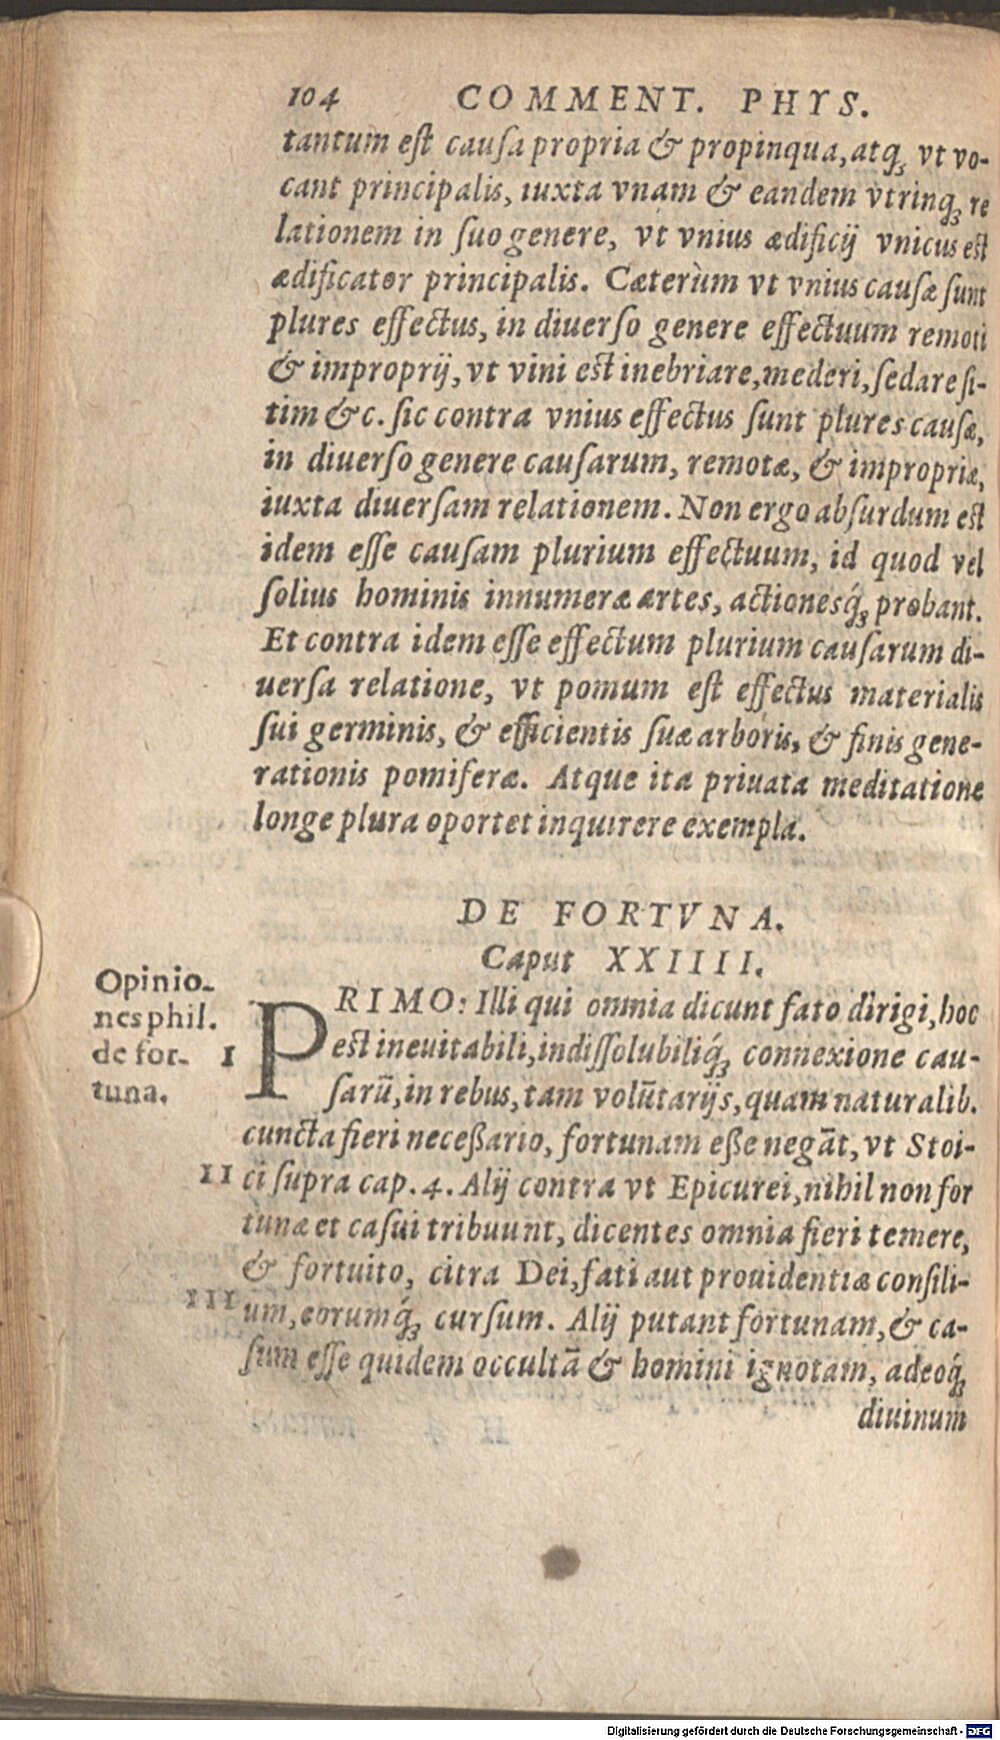 104 COMMENT. PHYS.
tantum eſt cauſa propria & propinqua, atq; vt vo-
cant principalis, iuxta vnam & eandem vtrinq; re
lationem in ſuo genere, vt vnius ædificij vnicus eſt
ædificator principalis. Cæterùm vt vnius cauſæ ſunt
plures effectus, in diuerſo genere effectuum remoti
& improprij, vt vini eſt inebriare, mederi, ſedare ſi-
tim &c. ſic contra vnius effectus ſunt plures cauſæ,
in diuerſo genere cauſarum, remotæ, & impropriæ,
iuxta diuerſam relationem. Non ergo abſurdum eſt
idem eſſe cauſam plurium effectuum, id quod vel
ſolius hominis innumeræ artes, actionesq́; probant.
Et contra idem eſſe effectum plurium cauſarum di-
uerſa relatione, vt pomum eſt effectus materialis
ſui germinis, & efficientis ſuæ arboris, & finis gene-
rationis pomiferæ. Atque ita priuata meditatione
longe plura oportet inquirere exempla.
DE FORTVNA.
Caput XXIIII.
Opinio-
nes phil.
de for-
tuna.
I PRIMO: Illi qui omnia dicunt fato dirigi, hoc
eſt ineuitabili, indiſſolubiliq́; connexione cau-
ſarũ, in rebus, tam volũtarijs, quam naturalib.
cuncta fieri neceßario, fortunam eße negãt, vt Stoi-
II ci ſupra cap. 4. Alij contra vt Epicurei, nihil non for
tunæ et caſui tribuunt, dicentes omnia fieri temere,
& fortuito, citra Dei, fati aut prouidentiæ conſili-
III um, eorumq́; curſum. Alij putant fortunam, & ca-
ſum eſſe quidem occultã & homini ignotam, adeoq́;
diuinum
Digitalisierung gefördert durch die Deutsche Forschungsgemeinschaft - DFG